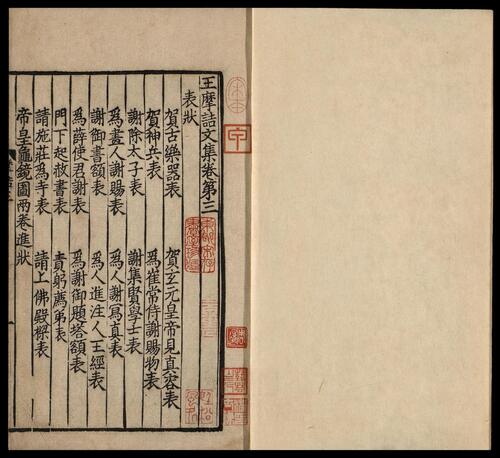 王摩詰文集卷第三
表狀
賀古樂器表　賀玄元皇帝見真容表
賀神兵表　爲崔常侍謝賜物表
謝除太子表　謝集賢學士表
爲畫人謝賜表　爲人謝寫真表
謝御書額表　爲人進注人王經表
爲薛使君謝表　爲謝御題塔額表
門下起赦書表　責躬薦弟表
請施莊爲寺表　請上佛殿樑表
帝皇龜鏡圖兩卷進狀
宋本
甲